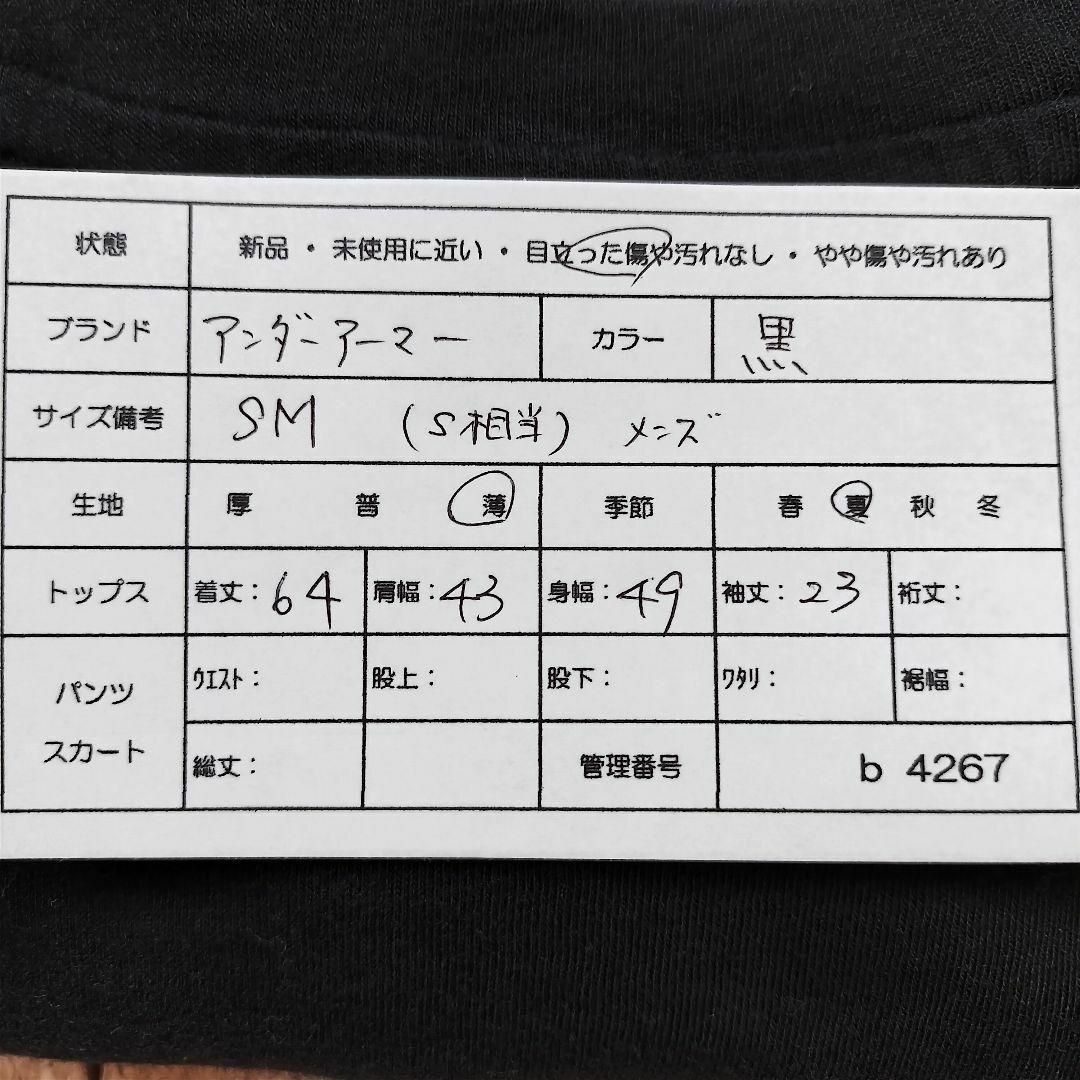 状態 新品 ・ 未使用に近い ・ 目立った傷や汚れなし ・ やや傷や汚れあり
ブランド アンダーアーマー カラー 黒
サイズ備考 SM (S相当) メンズ
生地 厚 普 薄 季節 春 夏 秋 冬
トップス 着丈：64 肩幅：43 身幅：49 袖丈：23 裄丈：
パンツ スカート
ｳｴｽﾄ： 股上： 股下： ﾜﾀﾘ： 裾幅：
総丈： 管理番号 b 4267